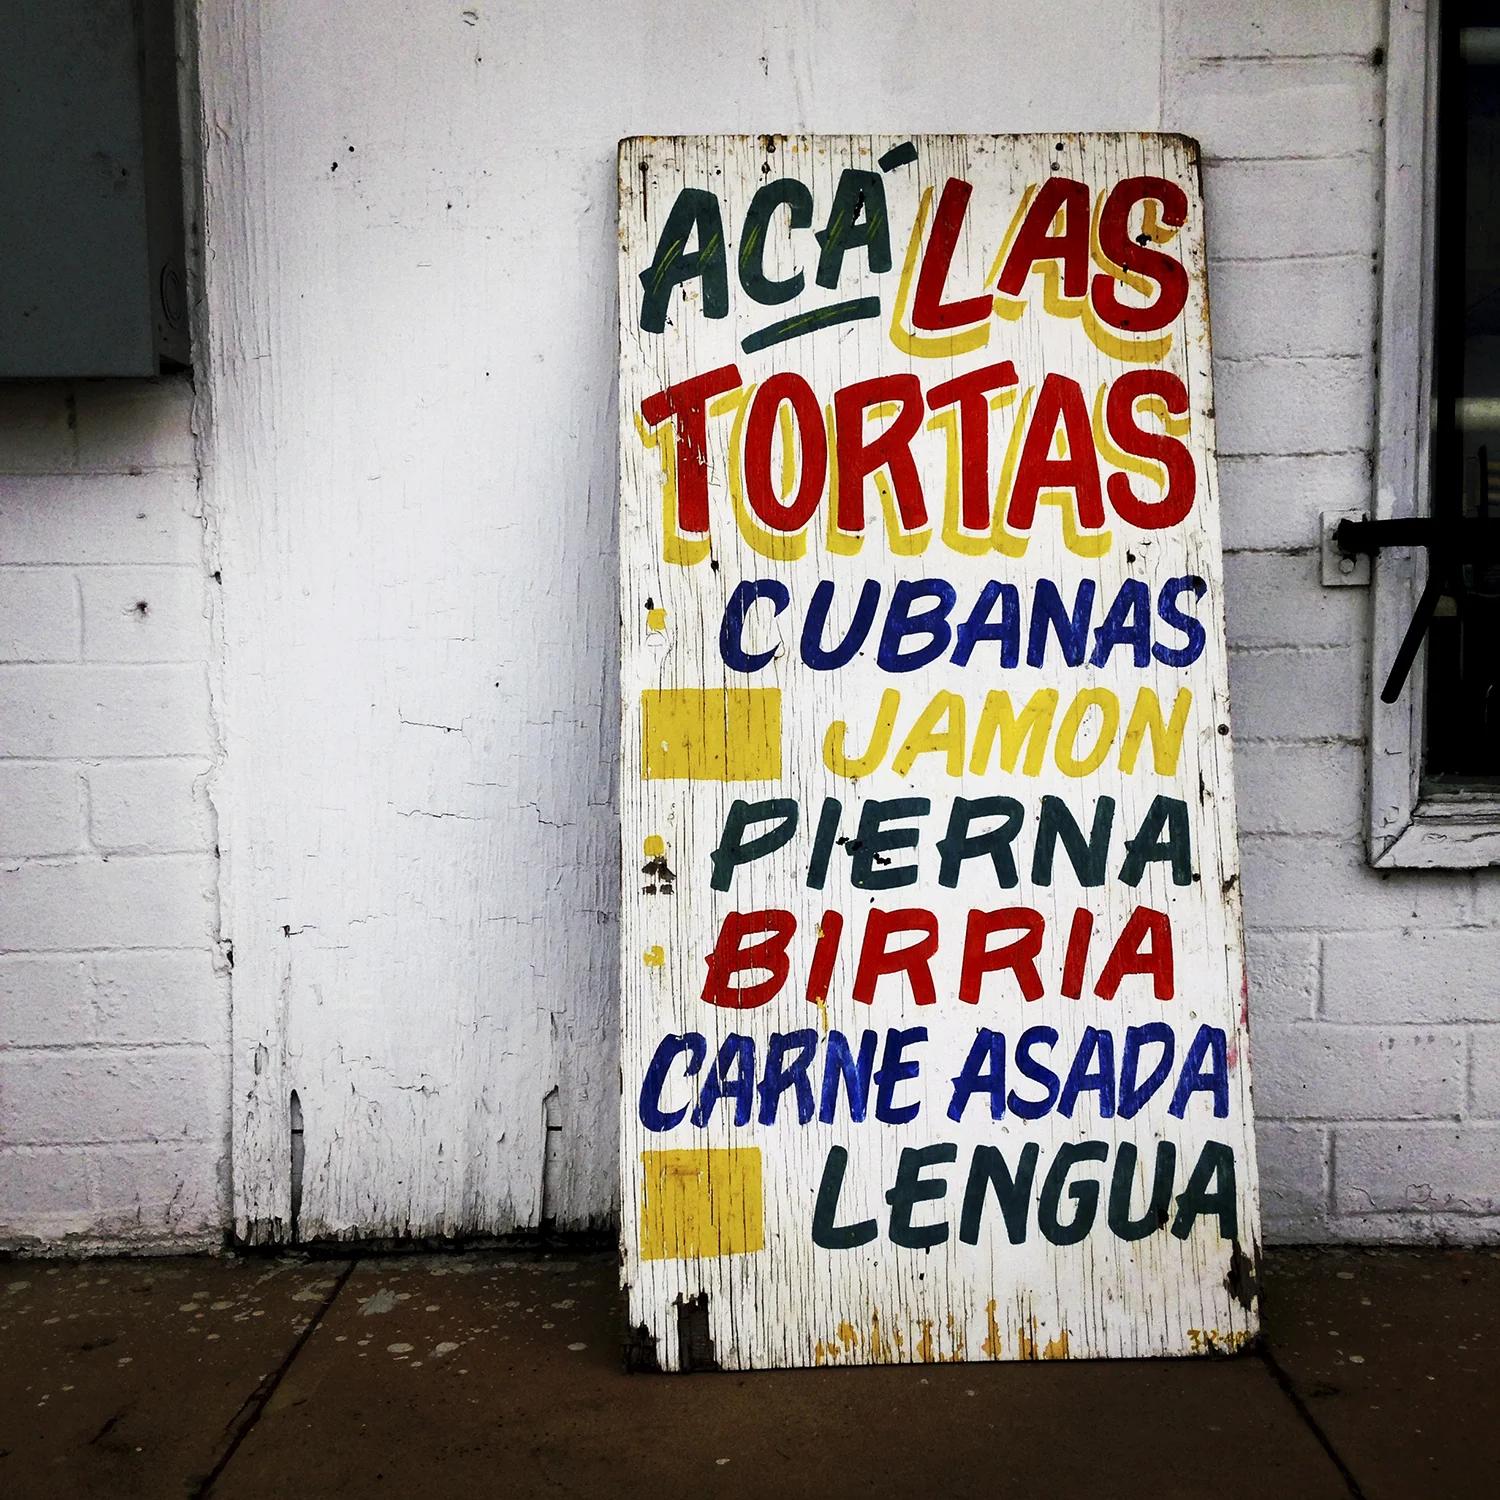 ACÁ LAS
TORTAS
CUBANAS
JAMON
PIERNA
BIRRIA
CARNE ASADA
LENGUA